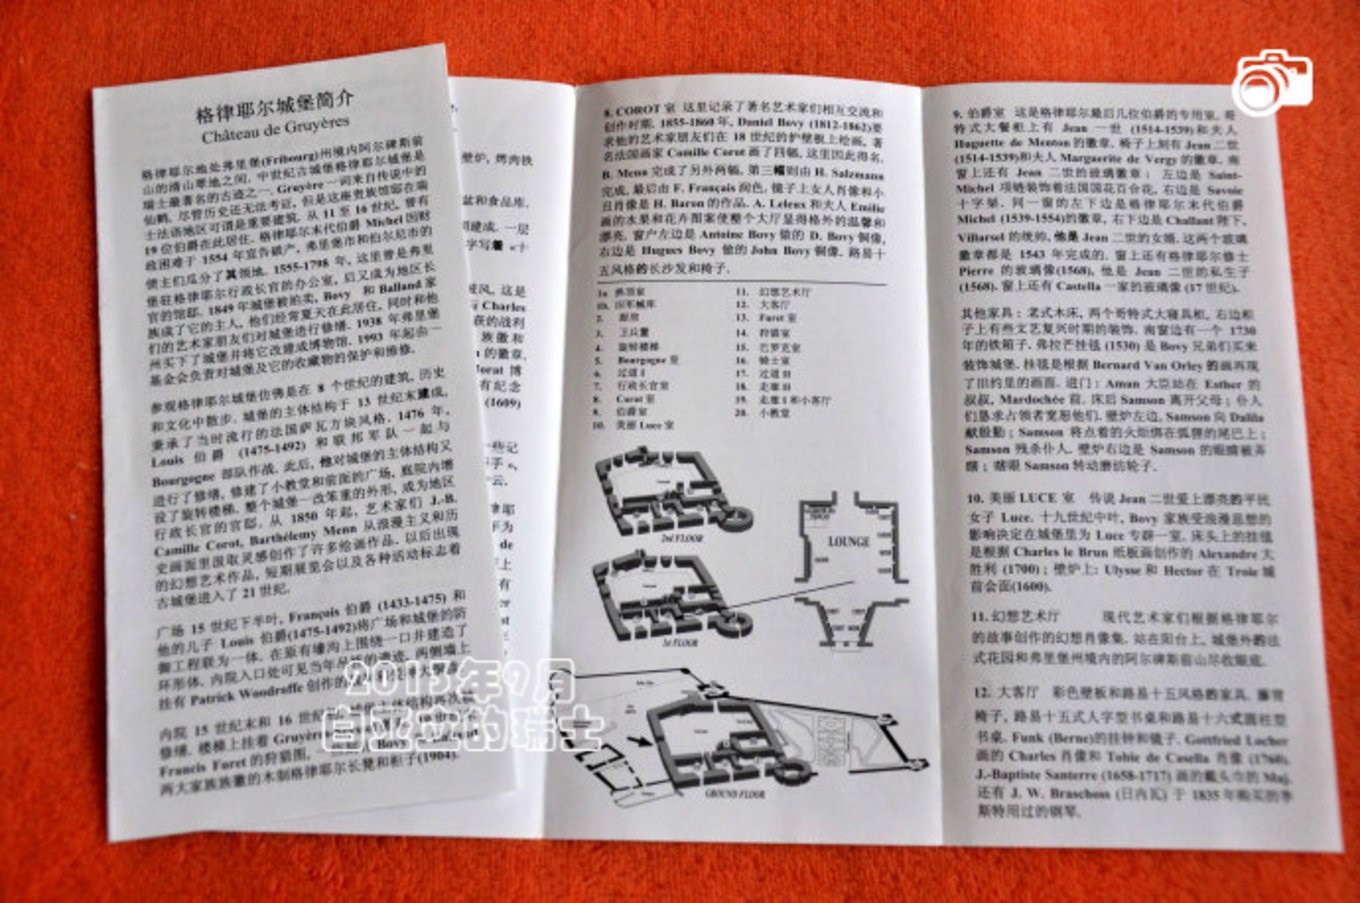 格律耶尔城堡简介
Château de Gruyères
格律耶尔地处弗里堡(Fribourg)州境内阿尔碑斯前
山的清山翠地之间. 中世纪古城堡格律耶尔城堡是
瑞士最著名的古迹之一. Gruyère一词来自传说中的
仙鹤. 尽管历史还无法考证, 但是这座贵族馆邸在瑞
士法语地区可谓是重要建筑. 从 11 至 16世纪, 曾有
19 位伯爵在此居住. 格律耶尔末代伯爵 Michel 因财
政困难于 1554 年宣告破产, 弗里堡市和伯尔尼市的
债主们瓜分了其领地. 1555-1798 年, 这里曾是弗里
堡驻格律耶尔行政长官的办公室, 后又成为地区长
官的馆邸. 1849年城堡被拍卖, Bovy 和 Balland家
族成了它的主人, 他们经常夏天在此居住, 同时和他
们的艺术家朋友们对城堡进行修缮. 1938 年弗里堡
州买下了城堡并将它改建成博物馆. 1993 年起由一
基金会负责对城堡及它的收藏物的保护和维修.
参观格律耶尔城堡仿佛是在 8 个世纪的建筑, 历史
和文化中散步. 城堡的主体结构于 13 世纪末建成,
秉承了当时流行的法国萨瓦方块风格. 1476 年,
Louis 伯爵 (1475-1492) 和联邦军队一起与
Bourgogne 部队作战. 此后, 他对城堡的主体结构又
进行了修缮, 修建了小教堂和前面的广场, 庭院内增
设了旋转楼梯. 整个城堡一改笨重的外形, 成为地区
行政长官的官邸. 从 1850 年起, 艺术家们 J.-B.
Camille Corot, Barthélemy Menn 从浪漫主义和历
史画面里汲取灵感创作了许多绘画作品. 以后出现
的幻想艺术作品, 短期展览会以及各种活动标志着
古城堡进入了 21 世纪.
广场 15 世纪下半叶, François 伯爵 (1433-1475) 和
他的儿子 Louis 伯爵(1475-1492)将广场和城堡的防
御工程联为一体. 在原有壕沟上围绕一口井建造了
环形体. 内院入口处可见当年吊桥的遗迹. 两侧墙上
挂有 Patrick Woodroffe 创作的
内院 15 世纪末和 16 世纪
修缮. 楼梯上挂着 Gruyère
Francis Furet 的狩猎图,
两大家族族徽的木制格律耶尔长凳和柜子(1904).
壁炉, 烤肉铁
盆和食品库,
建成. 一层
字写着 «十
(1609)
8. COROT 室 这里记录了著名艺术家们相互交流和
创作时期. 1855-1860 年, Daniel Bovy (1812-1862)要
求他的艺术家朋友们在 18 世纪的护壁板上绘画, 著
名法国画家 Camille Corot 画了四幅, 这里因此得名.
B. Menn 完成了另外两幅, 第三幅则由 H. Salzmann
完成, 最后由 F. Français 润色, 镜子上女人肖像和小
丑肖像是 H. Baron 的作品. A. Leleux 和夫人 Emilie
画的水果和花卉图案使整个大厅显得格外的温馨和
漂亮. 窗户左边是 Antoine Bovy 做的 D. Bovy 铜像,
右边是 Hugues Bovy 做的 John Bovy 铜像. 路易十
五风格的长沙发和椅子.
1b. 旧军械库
2. 厨房
3. 卫兵室
4. 旋转楼梯
5. Bourgogne 室
6. 过道 I
7. 行政长官室
8. Corot 室
9. 伯爵室
10. 美丽 Luce 室
11. 幻想艺术厅
12. 大客厅
13. Furet 室
14. 狩猎室
15. 巴罗克室
16. 骑士室
17. 过道 II
18. 走廊 II
19. 走廊 I 和小客厅
20. 小教堂
2nd FLOOR
1st FLOOR
LOUNGE
GROUND FLOOR
9. 伯爵室 这是格律耶尔最后几位伯爵的专用室. 哥
特式大餐柜上有 Jean 一世 (1514-1539)和夫人
Huguette de Menton 的徽章. 椅子上刻有 Jean 二世
(1514-1539)和夫人 Marguerite de Vergy 的徽章. 南
窗上还有 Jean 二世的玻璃徽章; 左边是 Saint-
Michel 项链装饰着法国国花百合花, 右边是 Savoie
十字架. 同一窗的左下边是格律耶尔末代伯爵
Michel (1539-1554)的徽章, 右下边是 Challant 陛下,
Villarsel 的统帅, 他是 Jean 二世的女婿. 这两个玻璃
徽章都是 1543 年完成的. 窗上还有格律耶尔修士
Pierre 的玻璃像(1568), 他是 Jean 二世的私生子
(1568). 窗上还有 Castella 一家的玻璃像 (17 世纪).
其他家具: 老式木床, 两个哥特式大寝具柜, 右边柜
子上有些文艺复兴时期的装饰. 南窗边有一个 1730
年的铁箱子. 弗拉芒挂毯 (1530) 是 Bovy 兄弟们买来
装饰城堡. 挂毯是根据 Bernard Van Orley 的画再现
了旧约里的画面. 进门: Aman 大臣站在 Esther 的
叔叔, Mardochée 前. 床后 Samson 离开父母; 仆人
们恳求占领者宽恕他们. 壁炉左边, Samson 向 Dalila
献殷勤; Samson 将点着的火炬绑在狐狸的尾巴上;
Samson 残杀仆人. 壁炉右边是 Samson 的眼睛被弄
瞎; 瞎眼 Samson 转动磨坊轮子.
10. 美丽 LUCE 室 传说 Jean 二世爱上漂亮的平民
女子 Luce. 十九世纪中叶, Bovy 家族受浪漫思想的
影响决定在城堡里为 Luce 专辟一室. 床头上的挂毯
是根据 Charles le Brun 纸板画创作的 Alexandre 大
胜利 (1700); 壁炉上: Ulysse 和 Hector 在 Troie 城
前会面(1600).
11. 幻想艺术厅 现代艺术家们根据格律耶尔
的故事创作的幻想肖像集. 站在阳台上, 城堡外的法
式花园和弗里堡州境内的阿尔碑斯前山尽收眼底.
12. 大客厅 彩色壁板和路易十五风格的家具. 藤背
椅子, 路易十五式人字型书桌和路易十六式圆柱型
书桌. Funk (Berne)的挂钟和镜子. Gottfried Locher
画的 Charles 肖像和 Tobie de Casella 肖像 (1760).
J.-Baptiste Santerre (1658-1717) 画的戴头巾的
还有 J. W. Braschoss (日内瓦) 于 1835 年购买的李
斯特用过的钢琴.
2013年9月
白亚立的瑞士